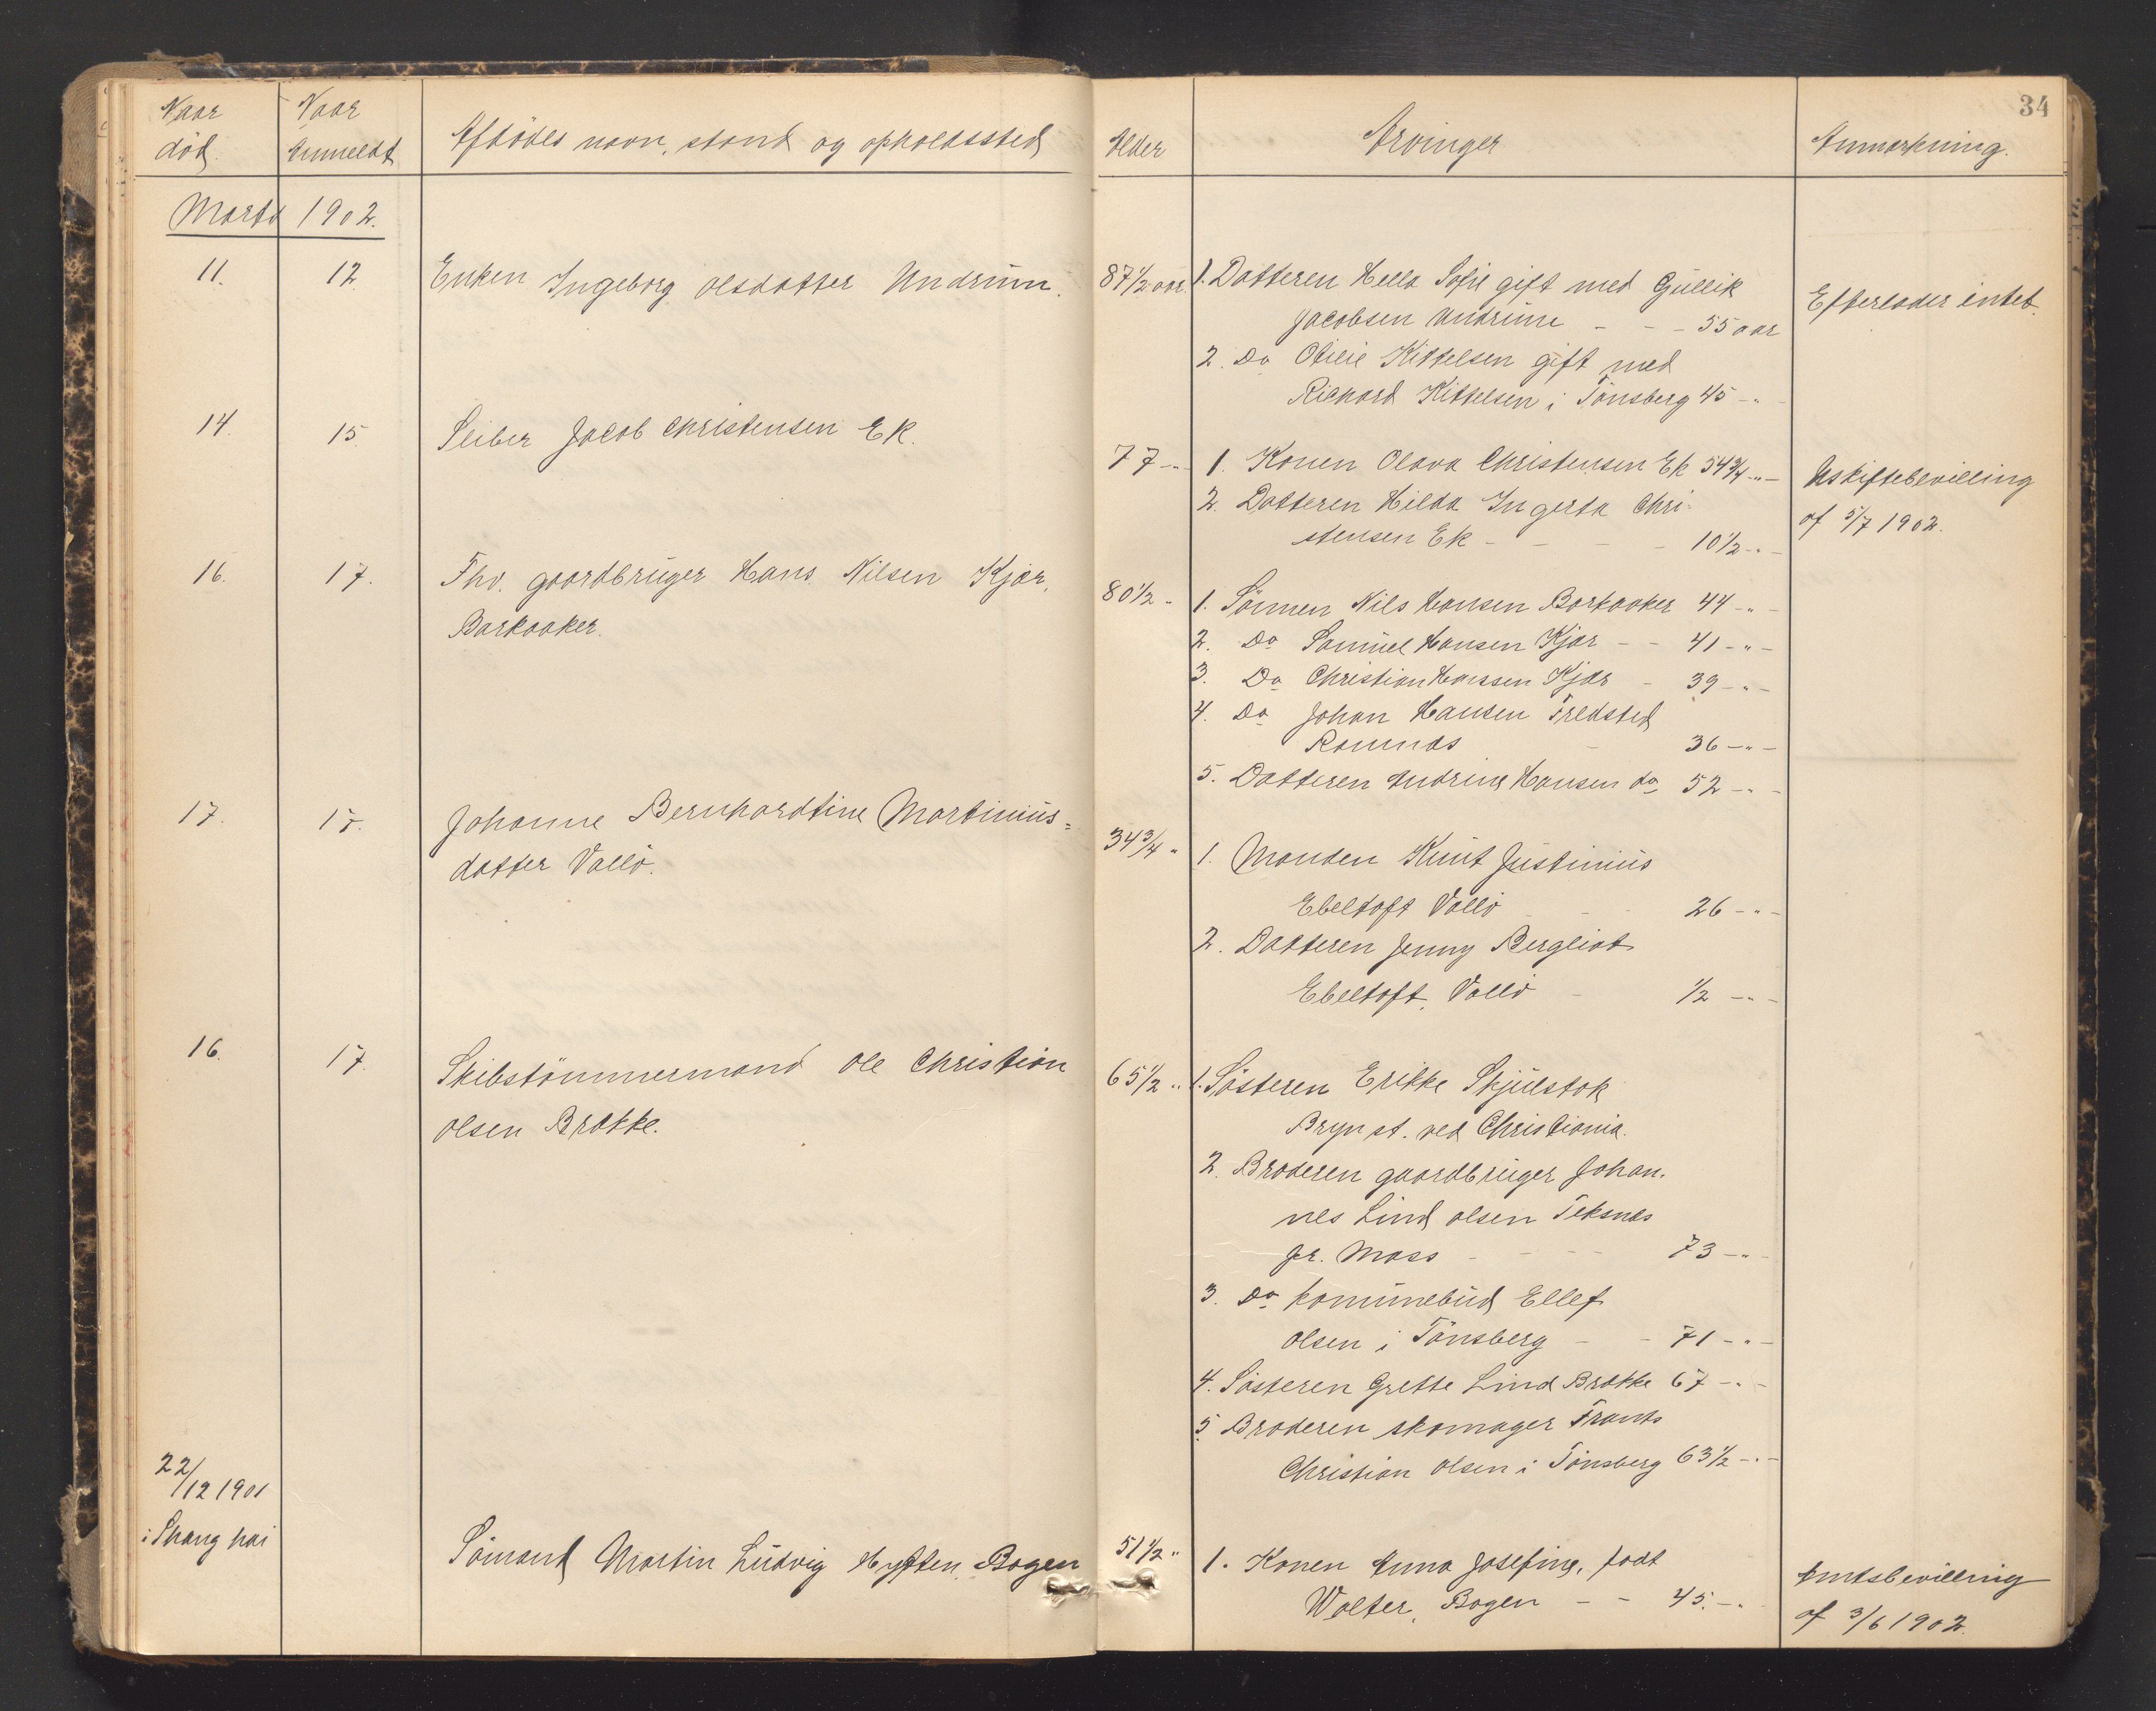 34
Naar død. Naar Anmeldt Afdødes navn, stand og opholdssted Alder Arvinger Anmærkning.
Marts 1902.
11. 12. Enken Ingeborg Olsdatter Undrum. 87 1/2 aar. 1. Datteren Hella Sofie gift med Gullik
Jacobsen Undrum - - - 55 aar
Efterlader intet.
2. Do Otilie Kittelsen gift med
Richard Kittelsen i Tønsberg 45 - " -
14. 15. Sliber Jacob Christensen Ek. 77 - " 1. Konen Olava Christensen Ek 54 3/4 - " -
Uskiftebevilling
2. Datteren Hilda Ingerta Chri-
stensen Ek - - - - 10 1/2 - " -
af 5/7 1902.
16. 17. Fhv. gaardbruger Hans Nilsen Kjær,
Barkaaker.
80 1/2 " 1. Sønnen Nils Hansen Barkaaker 44 - " -
2. Do Samuel Hansen Kjær - - 41 - " -
3. Do Christian Hansen Kjær - 39 - " -
4. Do Johan Hansen Fredsted
Ramnes - 36 - " -
5. Datteren Andrine Hansen do 52 - " -
17. 17. Johanne Bernhardtine Martinius=
datter Vallø.
34 3/4 " 1. Manden Knut Justinius
Ebeltoft Vallø - - 26 - " -
2. Datteren Jenny Bergliot
Ebeltoft, Vallø - 1/2 - " -
16. 17. Skibstømmermand Ole Christian
Olsen Brække.
65 1/2 " 1. Søsteren Erikke Skjulstok
Bryn st. ved Christiania.
2. Broderen gaardbruger Johan.
nes Lind Olsen Teksnes
pr. Moss - - - - 73 - " -
3. Do komunebud Ellef
Olsen i Tønsberg - - 71 - " -
4. Søsteren Grette Lind Brække 67 - " -
5. Broderen skomager Frants
Christian Olsen i Tønsberg 63 1/2 - " -
22/12 1901
i Shang hai
Sømand Martin Ludvig Hytten, Bogen
51 1/2 " 1. Konen Anna Josefine, født
Wolter, Bogen - - 45. - "
Amtsbevilling
af 3/6 1902.